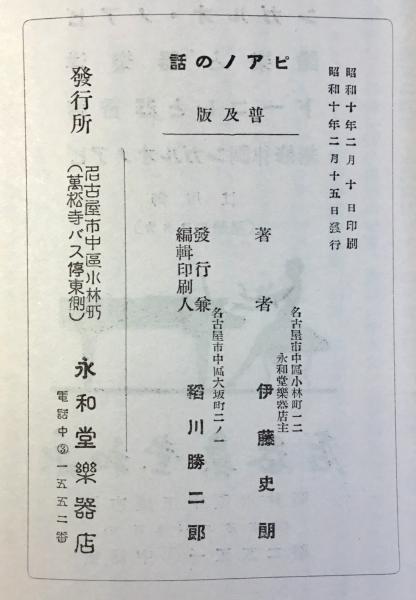 昭和十年二月十日印刷
昭和十年二月十五日發行
ピアノの話
普及版
名古屋市中區小林町一二
永和堂樂器店主
著者 伊藤史朗
名古屋市中區大坂町二ノ一
發行兼
編輯印刷人 稻川勝二郎
發行所
名古屋市中區小林町
(萬松寺バス停東側)
永和堂樂器店
電話中③一五五二番